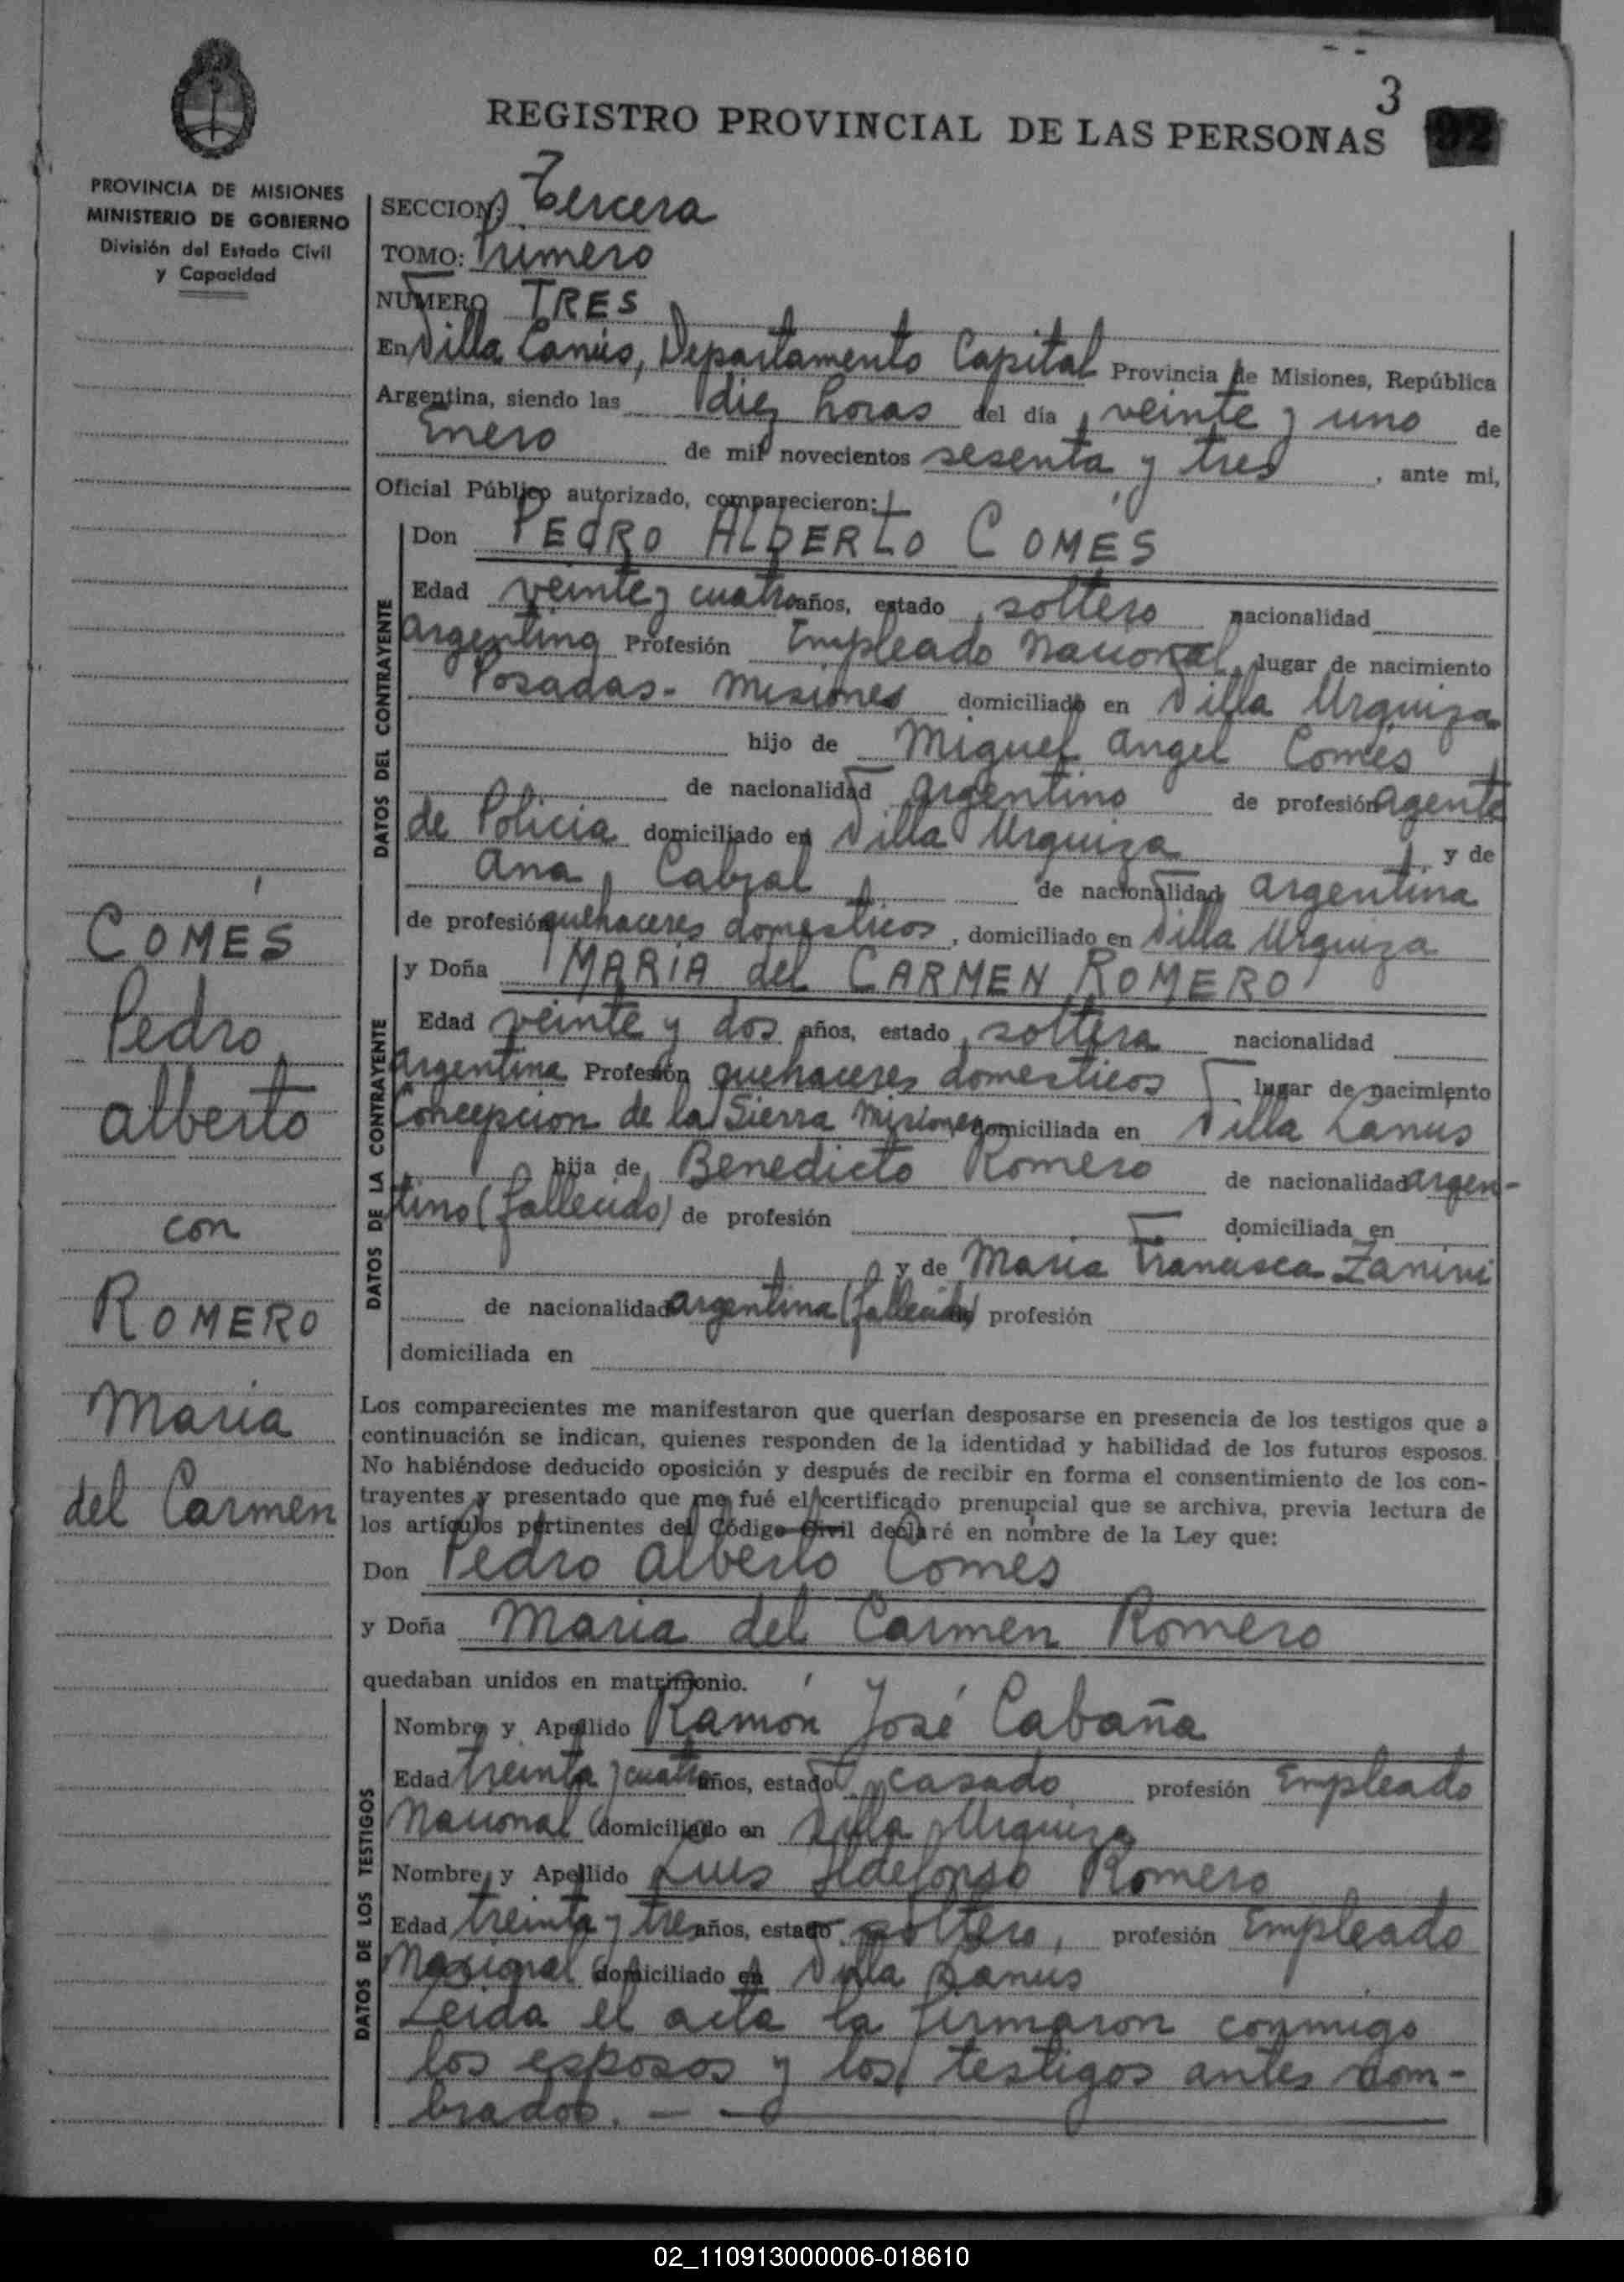 3
REGISTRO PROVINCIAL DE LAS PERSONAS
92
PROVINCIA DE MISIONES
MINISTERIO DE GOBIERNO
División del Estado Civil
y Capacidad
COMES
Pedro
Alberto
con
ROMERO
Maria
del Carmen
SECCION: Tercera
TOMO: Primero
NUMERO TRES
En Villa Lanús, Departamento Capital Provincia de Misiones, República
Argentina, siendo las diez horas del día veinte y uno de
Enero de mil novecientos sesenta y tres, ante mi,
Oficial Público autorizado, comparecieron:
DATOS DEL CONTRAYENTE
Don PEDRO ALBERTO COMES
Edad veinte y cuatro años, estado soltero nacionalidad
argentina Profesión Empleado Nacional, lugar de nacimiento
Posadas - Misiones domiciliado en Villa Urquiza
hijo de Miguel Angel Comes
de nacionalidad argentino de profesión agente
de Policia domiciliado en Villa Urquiza y de
Ana Cabral de nacionalidad argentina
de profesión quehaceres domesticos, domiciliado en Villa Urquiza
DATOS DE LA CONTRAYENTE
y Doña MARIA del CARMEN ROMERO
Edad veinte y dos años, estado soltera nacionalidad
argentina Profesión quehaceres domesticos lugar de nacimiento
Concepcion de la Sierra Misiones domiciliada en Villa Lanus
hija de Benedicto Romero de nacionalidad argen-
tino (fallecido) de profesión domiciliada en
y de Maria Francisca Zanini
de nacionalidad argentina (fallecida) profesión
domiciliada en
Los comparecientes me manifestaron que querían desposarse en presencia de los testigos que a
continuación se indican, quienes responden de la identidad y habilidad de los futuros esposos.
No habiéndose deducido oposición y después de recibir en forma el consentimiento de los con-
trayentes y presentado que me fué el certificado prenupcial que se archiva, previa lectura de
los artículos pertinentes del Código Civil declaré en nombre de la Ley que:
Don Pedro Alberto Comes
y Doña Maria del Carmen Romero
quedaban unidos en matrimonio.
DATOS DE LOS TESTIGOS
Nombre y Apellido Ramón José Cabaña
Edad treinta y cuatro años, estado casado profesión Empleado
Nacional domiciliado en Villa Urquiza
Nombre y Apellido Luis Ildefonso Romero
Edad treinta y tres años, estado soltero, profesión Empleado
Nacional domiciliado en Villa Lanus
Leida el acta la firmaron conmigo
los esposos y los testigos antes nom-
brados. —
02_110913000006-018610